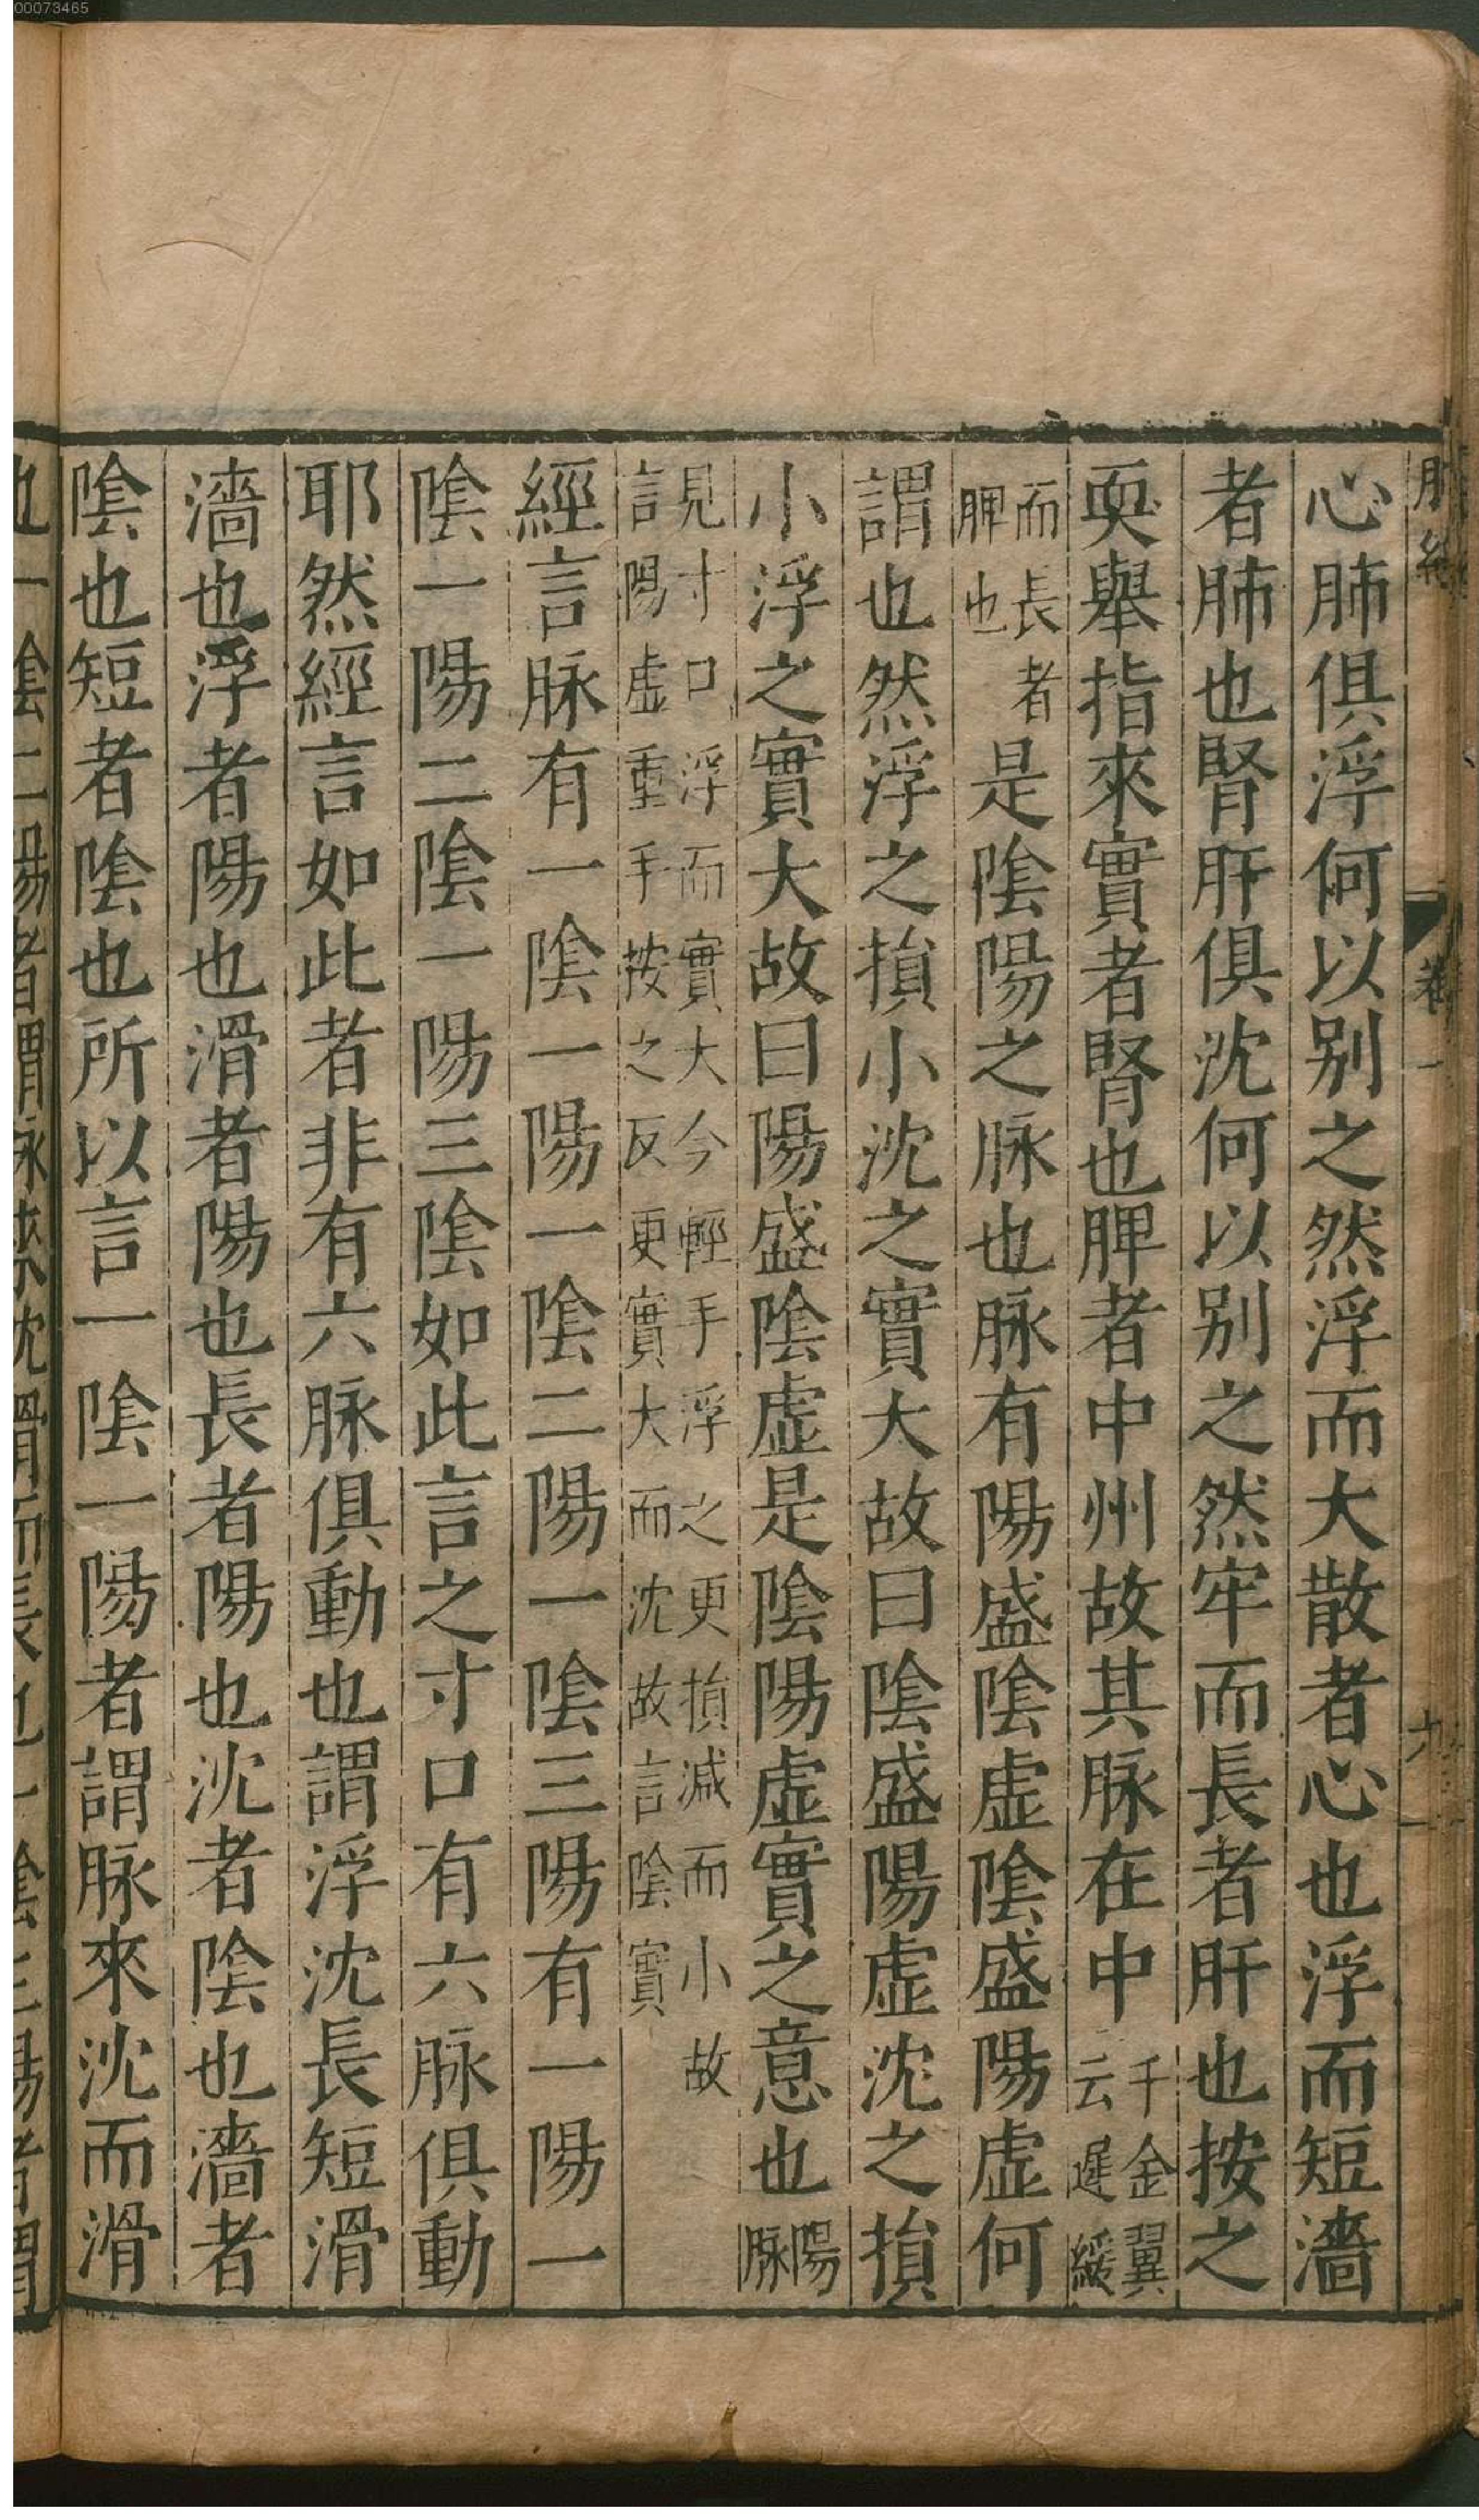 00073465
心肺俱浮何以别之然浮而大散者心也浮而短濇
者肺也腎肝俱沈何以别之然牢而長者肝也按之
耎舉指來實者腎也脾者中州故其脉在中千金翼云遲緩
而長者脾也是陰陽之脉也脉有陽盛陰虚陰盛陽虚何
謂也然浮之損小沈之實大故曰陰盛陽虚沈之損
小浮之實大故曰陽盛陰虚是陰陽虚實之意也陽脉
見寸口浮而實大今輕手浮之更損減而小故言陽虚重手按之反更實大而沈故言陰實
經言脉有一陰一陽一陰二陽一陰三陽有一陽一
陰一陽二陰一陽三陰如此言之寸口有六脉俱動
耶然經言如此者非有六脉俱動也謂浮沈長短滑
濇也浮者陽也滑者陽也長者陽也沈者陰也濇者
陰也短者陰也所以言一陰一陽者謂脉來沈而滑
也一陰二陽者謂脉來沈滑而長也一陰三陽者謂